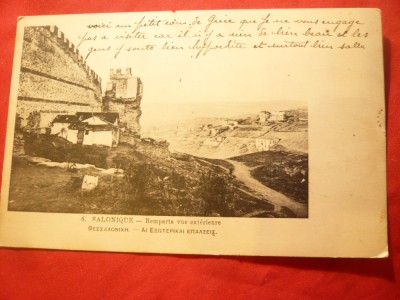 voici un petit coin de Grèce que je ne vous engage
pas a visiter car il n'y a rien de bien beau et les
gens y sont bien et surtout bien sales
8. SALONIQUE — Remparts vue extérieure
ΘΕΣΣΑΛΟΝΙΚΗ. — ΑΙ ΕΞΩΤΕΡΙΚΑΙ ΕΠΑΛΞΕΙΣ.